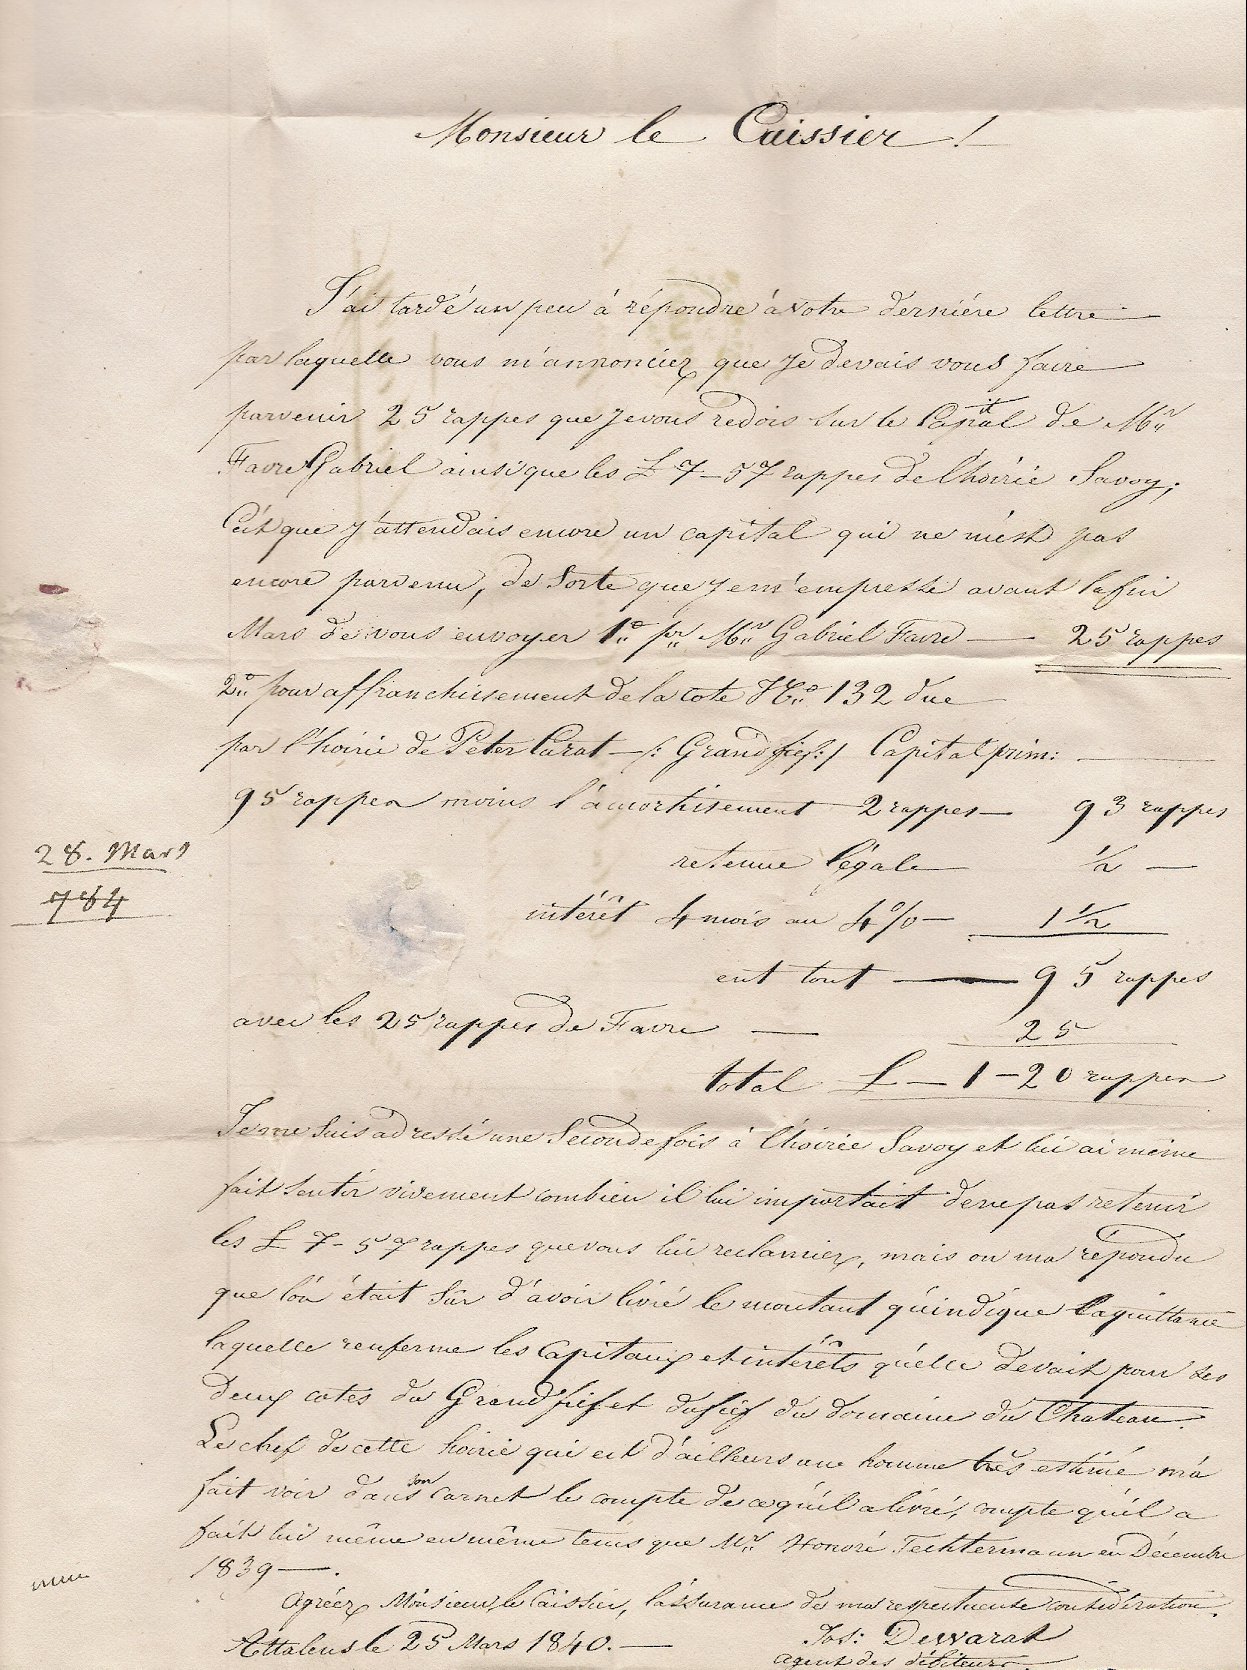 Monsieur le Caissier !
J'ai tardé un peu à répondre à votre derniére lettre
par laquelle vous m'annonciez que Je devais vous faire
parvenir 25 rappes que Je vous redois sur le Capital de Mr
Favre Gabriel ainsi que les £ 7–57 rappes de l'hoirie Savoy;
C'est que J'attendais encore un capital qui ne m'est pas
encore parvenu, de Sorte que Je m'empresse avant la fin
Mars de vous envoyer 1o pr Mr Gabriel Favre — 25 rappes
2o pour affranchissement de la cote No 132 due
par l'hoirie de Peter Carat — /: Grand fief :/ Capital prim:
95 rappen moins l'amortissement 2 rappes — 93 rappes
retenue légale ½ —
28. Mars
784
intérêt 4 mois au 4% — 1 ½
est tout — 95 rappes
avec les 25 rappes de Favre — 25
total £ — 1–20 rappen
Je me suis adressé une Seconde fois à l'hoirie Savoy et lui ai même
fait Sentir vivement combien il lui importait de ne pas retenir
les £ 7–57 rappes que vous lui reclamiez, mais on m'a répondu
que l'on était Sûr d'avoir livré le montant qu'indique la quittance
laquelle renferme les Capitaux et intérêts qu'elle devait pour ses
deux cotes du Grand fief et du fief du domaine du Chateau.
Le chef de cette hoirie qui est d'ailleurs une homme très estimé m'a
fait voir dans son Carnet le compte de ce qu'il a livré, compte qu'il a
fait lui même en même tems que Mr Honoré Techtermann en Décembre
1839 —.
Agréez Monsieur le Caissier, l'assurance de ma respectueuse considération.
Attalens le 25 Mars 1840. —
Jos: Dewarat
agent des débiteurs.